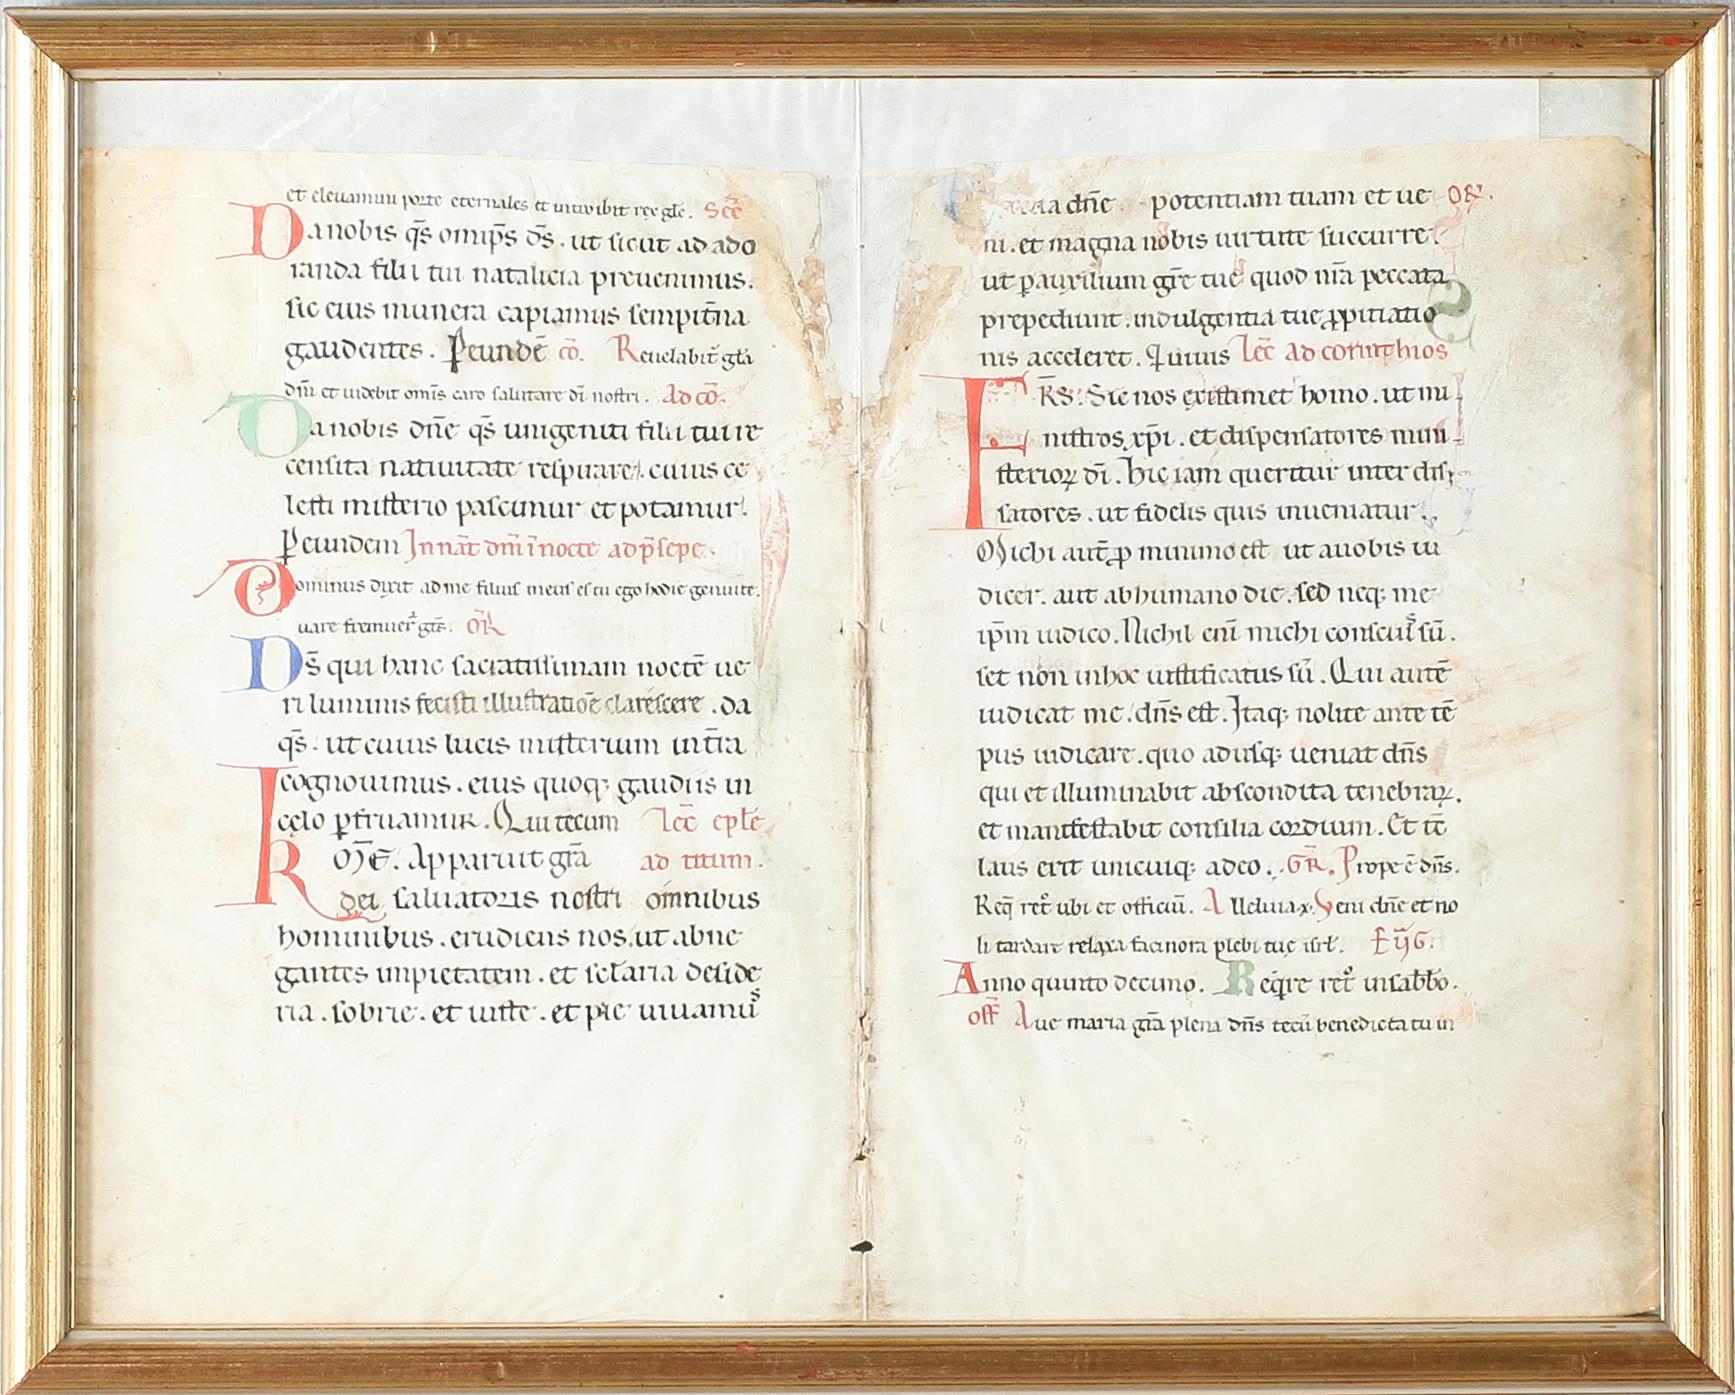 et eleuamini porte eternales et introibit rex glę. Sec̄
Da nobis q̄s omip̄s d̄s . ut sicut ad ado
randa filii tui natalicia preuenimus.
sic eius munera capiamus sempit̄na
gaudentes. Peundē cō. Reuelabit̄ gła
dn̄i et uidebit om̄is caro salutare dī nostri. Ad cō.
Da nobis dn̄e q̄s unigeniti filii tui re
censita natiuitate respirare . cuius ce
lesti misterio pascimur et potamur.
Peundem In nat̄ dn̄i ī nocte ad p̄sepe.
Dominus dixit ad me filius meus es tu ego hodie genui te.
uare fremuer̄ gt̄s. OR̄
Ds̄ qui hanc sacratissimam noctē ue
ri luminis fecisti illustratiōe clarescere . da
q̄s . ut cuius lucis misterium in t̄ra
cognouimus . eius quoq; gaudiis in
cęlo ꝑfruamur . Qui tecum Lec̄ epłe
KR̄ME. Apparuit gr̄a ad titum.
dei saluatoris nostri omnibus
hominibus . erudiens nos . ut abne
gantes impietatem . et secłaria deside
ria . sobrie . et iuste . et pie uiuamus
dn̄e potentiam tuam et ue OR̄.
ni . et magna nobis uirtute succurre
ut ꝑ auxilium gr̄e tue quod nr̄a peccata
prepediunt . indulgentia tue ꝓpitiatio
nis acceleret . Qui uiuis Lec̄ ad corinthios
FR̄S. Sic nos existimet homo . ut mi
nistros xp̄i . et dispensatores mini
steriorꝝ dī . Hic iam queritur inter dis
satores . ut fidelis quis inueniatur .
Michi aut̄ ꝓ minimo est ut a uobis iu
dicer . aut ab humano die . sed neq; me
ip̄m iudico . Nichil enī michi conscius sū .
set non in hoc iustificatus sū . Qui autē
iudicat me . dn̄s est . Itaq; nolite ante tē
pus iudicare . quo adusq; ueniat dn̄s
qui et illuminabit abscondita tenebrarꝝ .
et manifestabit consilia cordium . Et tc̄
laus erit unicuiq; a deo . GR̄. Prope ē dn̄s.
Req̄ ret° ubi et officiū . Alleluia x . Veni dn̄e et no
li tardare relaxa facinora plebi tue isrł . EV̄G.
Anno quinto decimo . Req̄re ret° in sabb̄o .
off̄ Aue maria gr̄a plena dn̄s tecū benedicta tu in